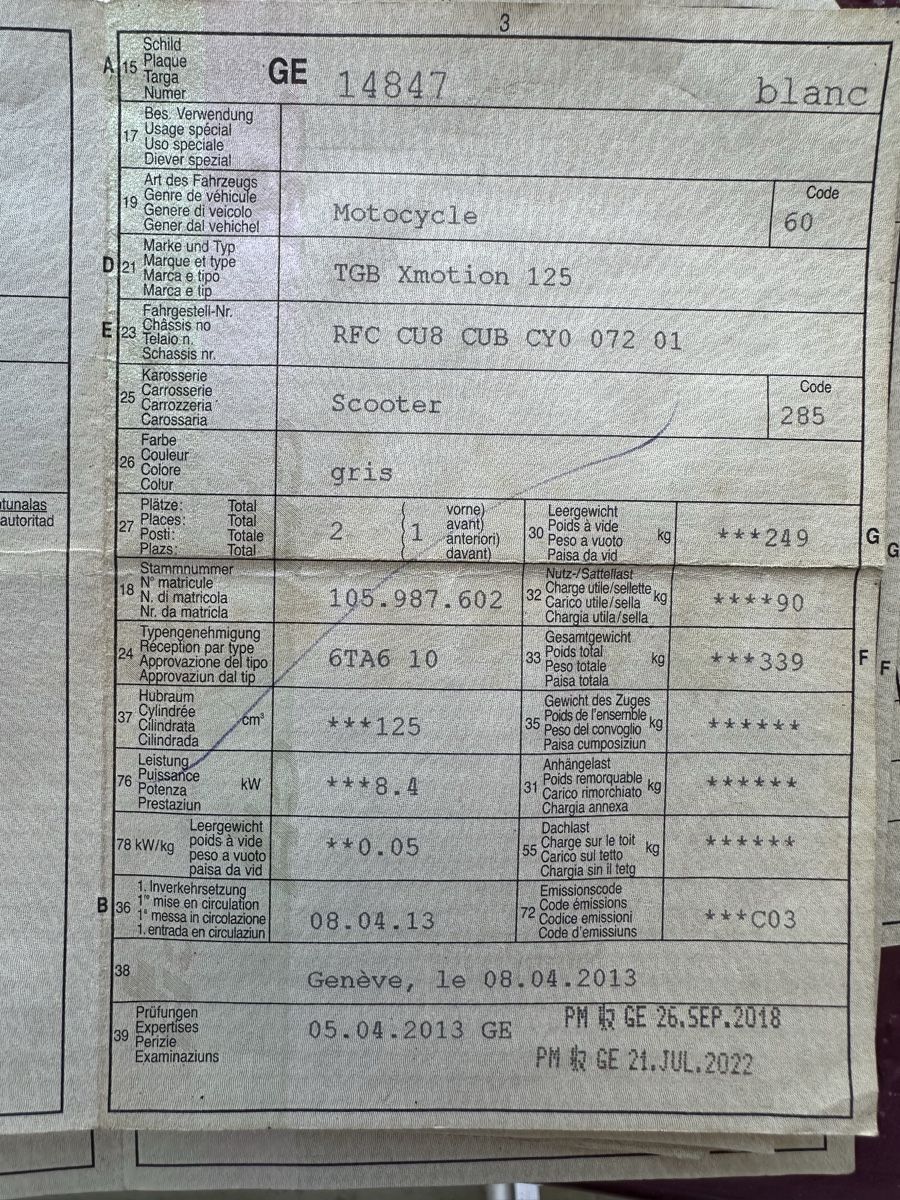 3
A 15 Schild
Plaque
Targa
Numer
GE 14847 blanc
17 Bes. Verwendung
Usage spécial
Uso speciale
Diever spezial
19 Art des Fahrzeugs
Genre de véhicule
Genere di veicolo
Gener dal vehichel
Motocycle
Code
60
D 21 Marke und Typ
Marque et type
Marca e tipo
Marca e tip
TGB Xmotion 125
E 23 Fahrgestell-Nr.
Châssis no
Telaio n.
Schassis nr.
RFC CU8 CUB CY0 072 01
25 Karosserie
Carrosserie
Carrozzeria
Carossaria
Scooter
Code
285
26 Farbe
Couleur
Colore
Colur
gris
tunalas
autoritad
27 Plätze: Total
Places: Total
Posti: Totale
Plazs: Total
2 { 1 vorne)
avant)
anteriori)
davant)
30 Leergewicht
Poids à vide
Peso a vuoto
Paisa da vid
kg
***249
G
G
18 Stammnummer
N° matricule
N. di matricola
Nr. da matricla
105.987.602
32 Nutz-/Sattellast
Charge utile/sellette
Carico utile/sella
Chargia utila/sella
kg
****90
24 Typengenehmigung
Réception par type
Approvazione del tipo
Approvaziun dal tip
6TA6 10
33 Gesamtgewicht
Poids total
Peso totale
Paisa totala
kg
***339
F
F
37 Hubraum
Cylindrée
Cilindrata
Cilindrada
cm³
***125
35 Gewicht des Zuges
Poids de l'ensemble
Peso del convoglio
Paisa cumposiziun
kg
******
76 Leistung
Puissance
Potenza
Prestaziun
kW
***8.4
31 Anhängelast
Poids remorquable
Carico rimorchiato
Chargia annexa
kg
******
78 kW/kg Leergewicht
poids à vide
peso a vuoto
paisa da vid
**0.05
55 Dachlast
Charge sur le toit
Carico sul tetto
Chargia sin il tetg
kg
******
B 36 1. Inverkehrsetzung
1re mise en circulation
1a messa in circolazione
1. entrada en circulaziun
08.04.13
72 Emissionscode
Code émissions
Codice emissioni
Code d'emissiuns
***C03
38 Genève, le 08.04.2013
39 Prüfungen
Expertises
Perizie
Examinaziuns
05.04.2013 GE
PM GE 26.SEP.2018
PM GE 21.JUL.2022